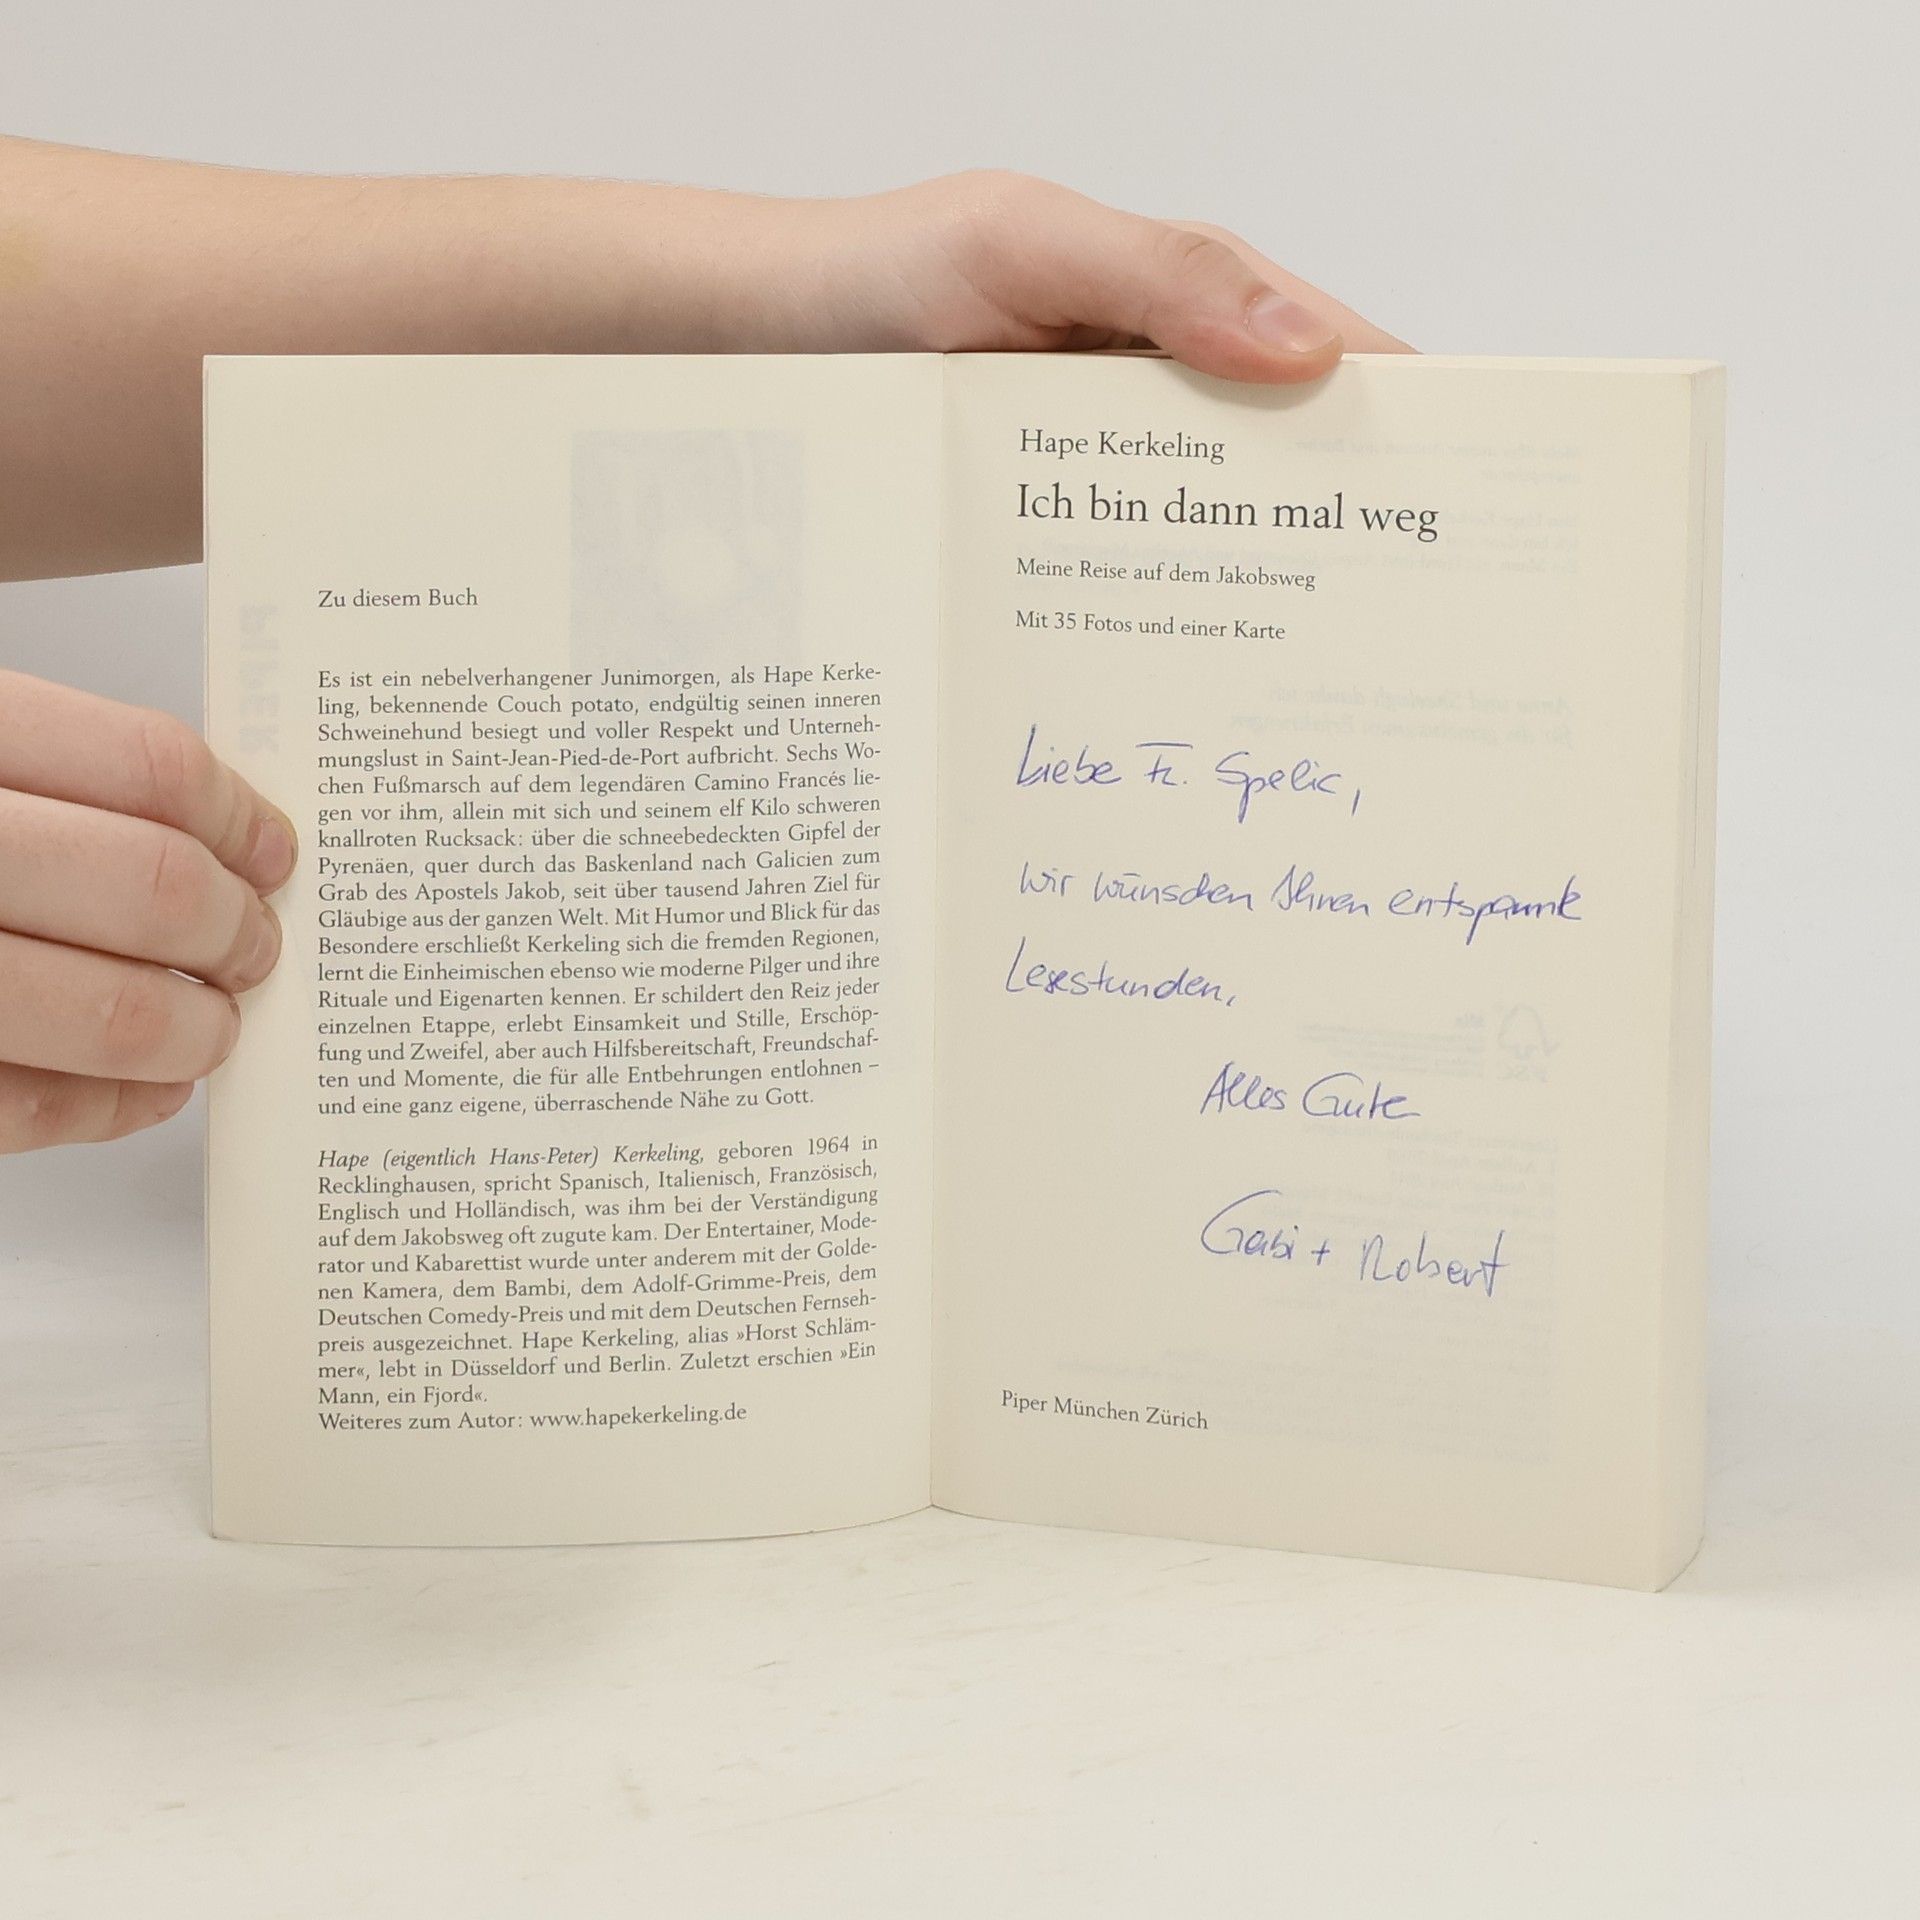 Zu diesem Buch
Es ist ein nebelverhangener Junimorgen, als Hape Kerke-
ling, bekennende Couch potato, endgültig seinen inneren
Schweinehund besiegt und voller Respekt und Unterneh-
mungslust in Saint-Jean-Pied-de-Port aufbricht. Sechs Wo-
chen Fußmarsch auf dem legendären Camino Francés lie-
gen vor ihm, allein mit sich und seinem elf Kilo schweren
knallroten Rucksack: über die schneebedeckten Gipfel der
Pyrenäen, quer durch das Baskenland nach Galicien zum
Grab des Apostels Jakob, seit über tausend Jahren Ziel für
Gläubige aus der ganzen Welt. Mit Humor und Blick für das
Besondere erschließt Kerkeling sich die fremden Regionen,
lernt die Einheimischen ebenso wie moderne Pilger und ihre
Rituale und Eigenarten kennen. Er schildert den Reiz jeder
einzelnen Etappe, erlebt Einsamkeit und Stille, Erschöp-
fung und Zweifel, aber auch Hilfsbereitschaft, Freundschaf-
ten und Momente, die für alle Entbehrungen entlohnen –
und eine ganz eigene, überraschende Nähe zu Gott.
Hape (eigentlich Hans-Peter) Kerkeling, geboren 1964 in
Recklinghausen, spricht Spanisch, Italienisch, Französisch,
Englisch und Holländisch, was ihm bei der Verständigung
auf dem Jakobsweg oft zugute kam. Der Entertainer, Mode-
rator und Kabarettist wurde unter anderem mit der Golde-
nen Kamera, dem Bambi, dem Adolf-Grimme-Preis, dem
Deutschen Comedy-Preis und mit dem Deutschen Fernseh-
preis ausgezeichnet. Hape Kerkeling, alias »Horst Schläm-
mer«, lebt in Düsseldorf und Berlin. Zuletzt erschien »Ein
Mann, ein Fjord«.
Weiteres zum Autor: www.hapekerkeling.de
Hape Kerkeling
Ich bin dann mal weg
Meine Reise auf dem Jakobsweg
Mit 35 Fotos und einer Karte
Liebe Fr. Spelic,
wir wünschen Ihnen entspannte
Lesestunden,
Alles Gute
Gabi + Robert
Piper München Zürich